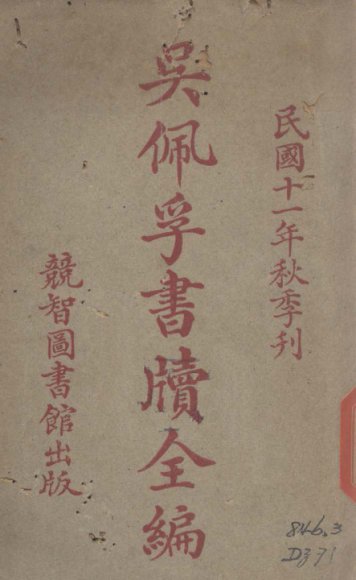 民國十一年秋季刊
吳佩孚書牘全編
競智圖書館出版
846.3